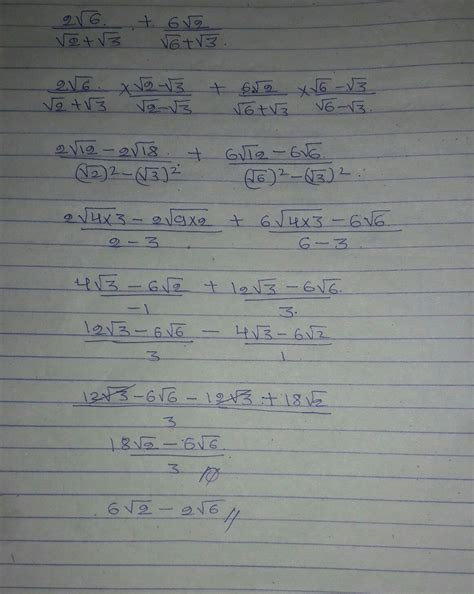 2√6/(√2+√3) + 6√2/(√6+√3)
2√6/(√2+√3) × (√2-√3)/(√2-√3) + 6√2/(√6+√3) × (√6-√3)/(√6-√3)
(2√12-2√18)/((√2)²-(√3)²) + (6√12-6√6)/((√6)²-(√3)²)
(2√4×3-2√9×2)/(2-3) + (6√4×3-6√6)/(6-3)
(4√3-6√2)/-1 + (12√3-6√6)/3
(12√3-6√6)/3 - (4√3-6√2)/1
(12√3-6√6-12√3+18√2)/3
(18√2-6√6)/3
6√2-2√6//